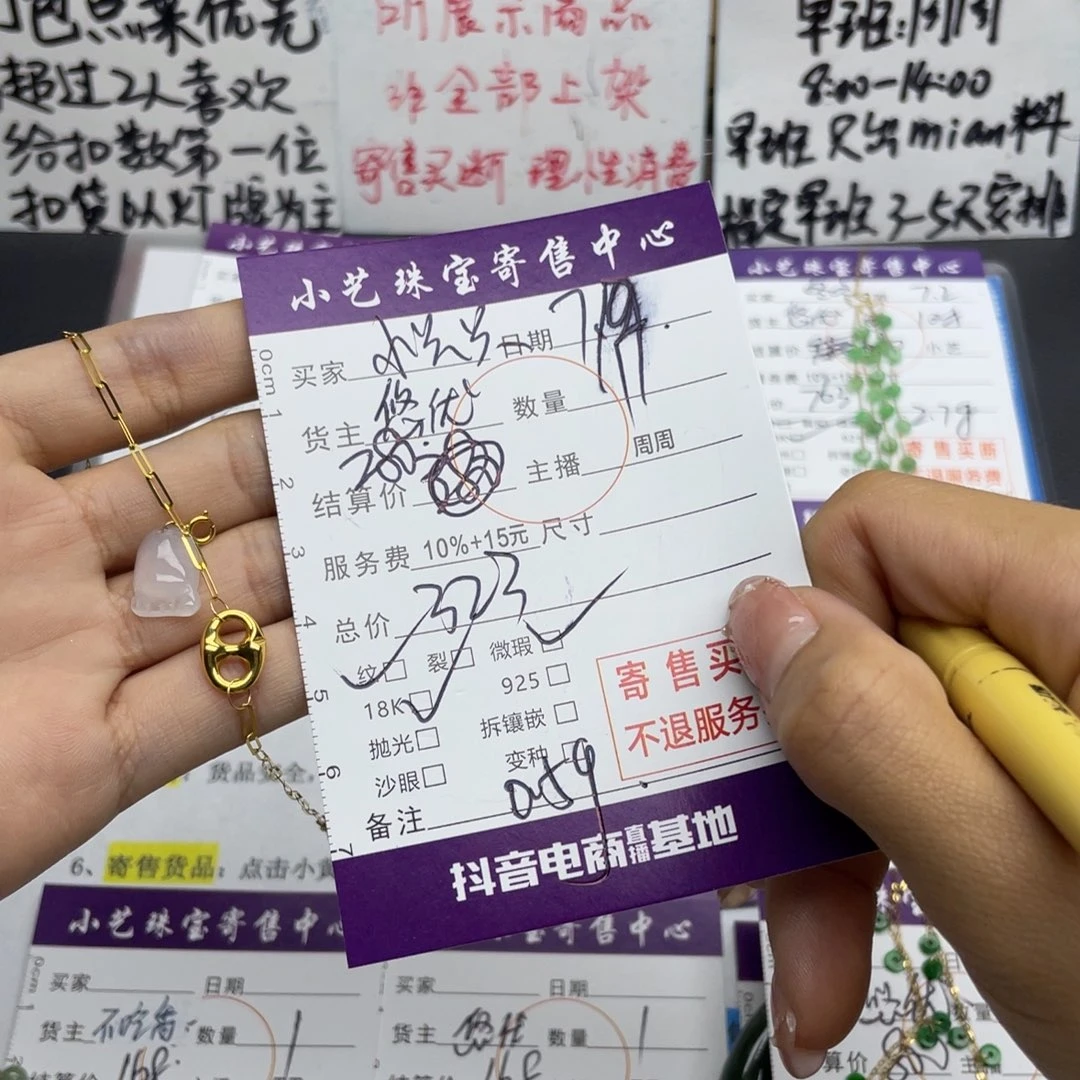 超过2人喜欢
给扣数第一位
扣货以灯牌为主
所展示商品
非全部上架
寄售买断 理性消费
早班:周周
8:00-14:00
早班只出mian料
指定早班3-5天安排
小艺珠宝寄售中心
买家 日期 7.9
货主 悠优 数量
结算价 280 主播 周周
服务费 10%+15元 尺寸
总价 323
纹 裂 微瑕
18K 925
抛光 拆镶嵌
沙眼 变种
备注 0.59
寄售买
不退服务
抖音电商直播基地
0cm 1 2 3 4 5 6 7
小艺珠宝寄售中心
7.2
小艺
763
2.7g
寄售买断
不退服务费
货品安全,
6、寄售货品:点击小黄
小艺珠宝寄售中心
买家 日期
货主 数量 1
结算价 168
买家 日期
货主 悠优 数量 1
结算价 168
悠优 数量
算价 主播